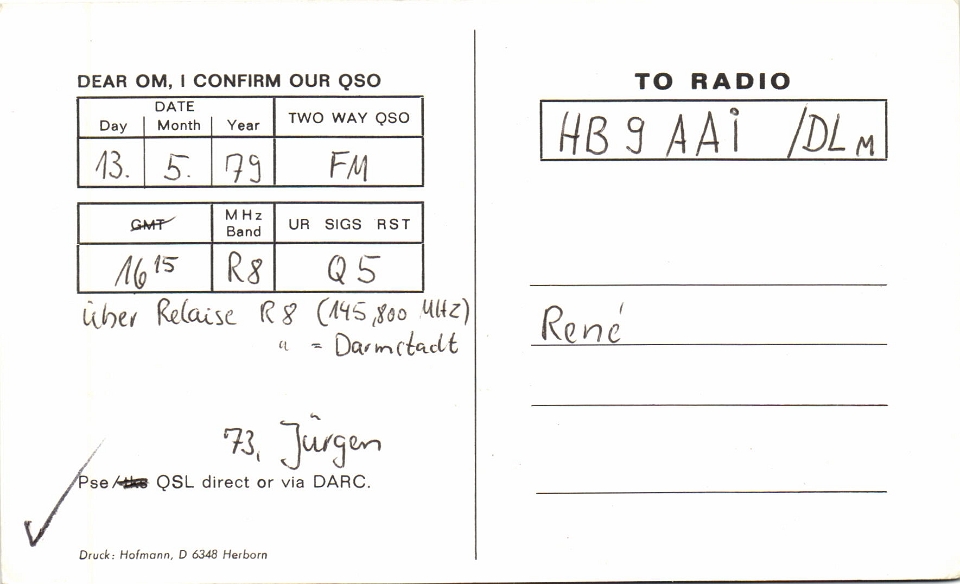 DEAR OM, I CONFIRM OUR QSO
DATE
Day Month Year TWO WAY QSO
13. 5. 79 FM
GMT MHz Band UR SIGS RST
16 15 R8 Q5
über Relaise R8 (145,800 MHz)
" = Darmstadt
73, Jürgen
Pse/tks QSL direct or via DARC.
Druck: Hofmann, D 6348 Herborn
TO RADIO
HB9AAI /DL M
René